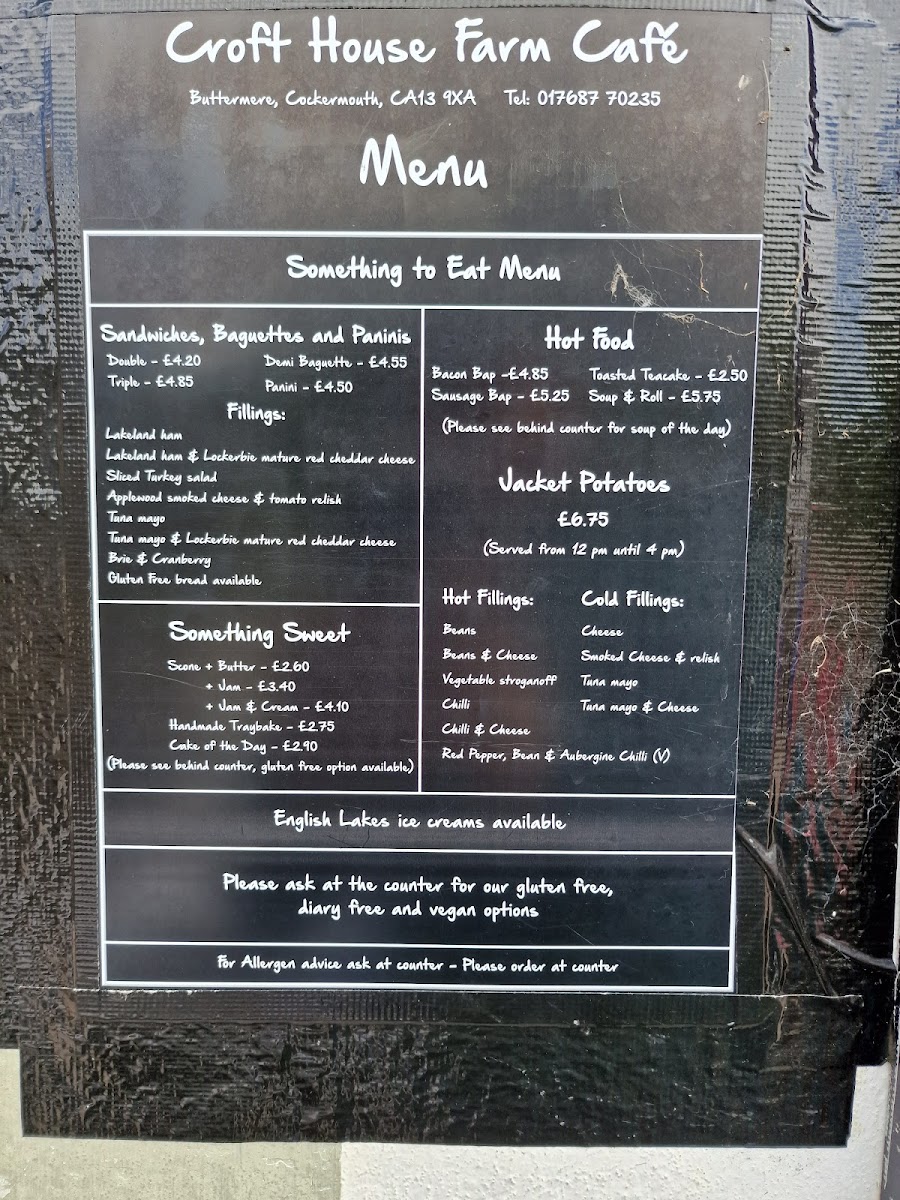 Croft House Farm Café
Buttermere, Cockermouth, CA13 9XA Tel: 017687 70235
Menu
Something to Eat Menu
Sandwiches, Baguettes and Paninis
Double - £4.20 Demi Baguette - £4.55
Triple - £4.85 Panini - £4.50
Fillings:
Lakeland ham
Lakeland ham & Lockerbie mature red cheddar cheese
Sliced Turkey salad
Applewood smoked cheese & tomato relish
Tuna mayo
Tuna mayo & Lockerbie mature red cheddar cheese
Brie & Cranberry
Gluten Free bread available
Something Sweet
Scone + Butter - £2.60
+ Jam - £3.40
+ Jam & Cream - £4.10
Handmade Traybake - £2.75
Cake of the Day - £2.90
(Please see behind counter, gluten free option available)
Hot Food
Bacon Bap -£4.85 Toasted Teacake - £2.50
Sausage Bap - £5.25 Soup & Roll - £5.75
(Please see behind counter for soup of the day)
Jacket Potatoes
£6.75
(Served from 12 pm until 4 pm)
Hot Fillings: Cold Fillings:
Beans Cheese
Beans & Cheese Smoked Cheese & relish
Vegetable stroganoff Tuna mayo
Chilli Tuna mayo & Cheese
Chilli & Cheese
Red Pepper, Bean & Aubergine Chilli (V)
English Lakes ice creams available
Please ask at the counter for our gluten free,
diary free and vegan options
For Allergen advice ask at counter - Please order at counter